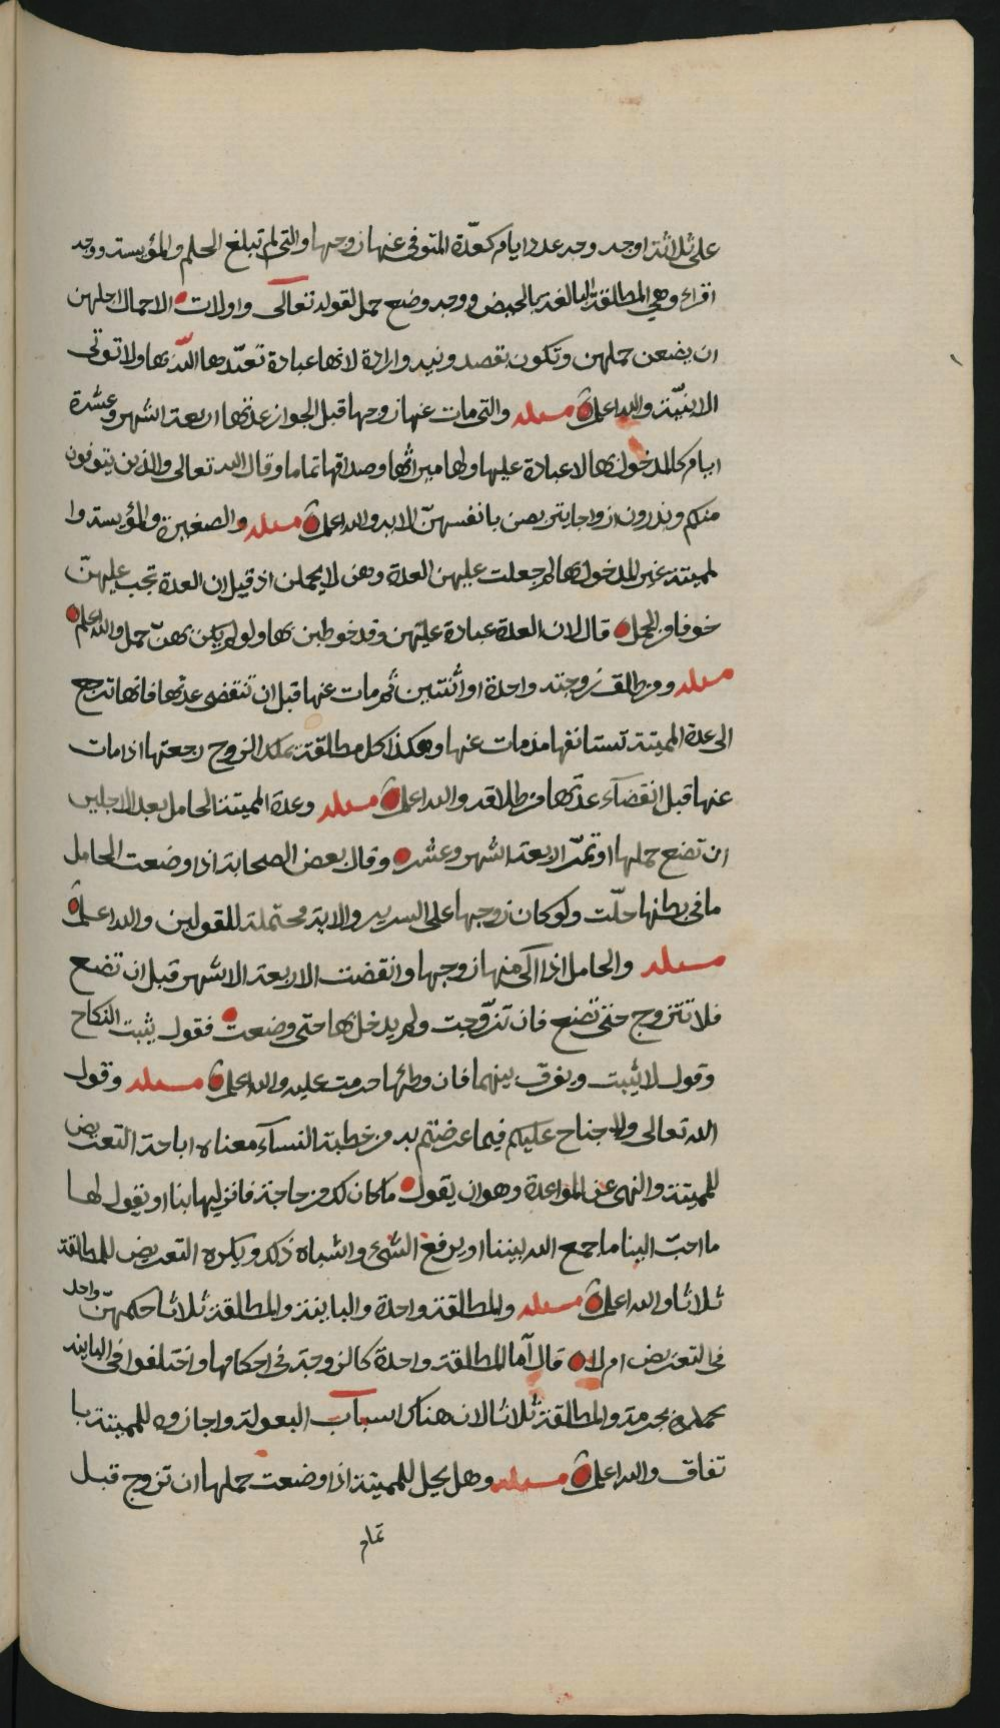 على ثلاثة اوجه وجه عدد ايام كعدّة المتوفى عنها زوجها والتي لم تبلغ الحلم والمؤيسة ووجه
اقراء وهي المطالقة البالغة بالحيض ووجه وضع حمل لقوله تعالى واولات الاحمال اجلهن
ان يضعن حملهن وتكون بقصد ونيه وارادة لانها عبادة تعبّدها اللّه بها ولا توتى
الا بنيّة والله اعلم مسئله والتي مات عنها زوجها قبل الجواز عدتها اربعة اشهر وعشرة
ايام كالمدخول بها لا عبادة عليها ولها ميراثها وصداقها تماما وقال الله تعالى والذين يتوفون
منكم ويذرون ازواجا يتربصن بانفسهنّ الايه والله اعلم مسئله والصغيرة والمؤيسة وا
لمميتة غير المدخول بها لم جعلت عليهن العدة وهن لا يحملن اذ قيل ان العدة تجب عليهنّ
خوفا من الحمل قال لان العدة عبادة عليهن وقد خوطبن بها ولو لم يكن بهنّ حمل والله اعلم
مسئله ومن طالق زوجته واحدة او اثنتين ثم مات عنها قبل ان تنقضي عدتها فانها ترجع
الى عدة المميتة تستانفها مذ مات عنها وهكذا كل مطالقة يملك الزوج رجعتها اذا مات
عنها قبل انقضآء عدتها من طلاقه والله اعلم مسئله وعدة المميتة الحامل بعد الاجلين
ان تضع حملها او تمرّ الاربعة اشهر وعشر وقال بعض الصحابة اذا وضعت الحامل
ما في بطنها حلّت ولو كان زوجها على السرير والاية محتملة للقولين والله اعلم
مسئله والحامل اذا الى منها زوجها وانقضت الاربعة الاشهر قبل ان تضع
فلا تتزوج حتى تضع فان تزوّجت ولم يدخل بها حتى وضعت فقول يثبت النكاح
وقول لا يثبت ويفرق بينهما فان وطئها حرمت عليه والله اعلم مسئله وقول
الله تعالى ولا جناح عليكم فيما عرضتم به من خطبة النسآء معناه اباحة التعريض
للمميتة والنهي عن المواعدة وهو ان يقول ما كان لك من حاجة فانزليها بنا او يقول لها
ما احبّ الينا ما جمع الله بيننا او يرفع الشيء واشباه ذلك ويكره التعريض للمطالقة
ثلاثا والله اعلم مسئله والمطالقة واحدة والباينة والمطالقة ثلاثا حكمهنّ واحد
في التعريض ام لا قال اما المطالقة واحدة كالزوجة في احكامها واختلفوا في الباينه
بحرمة والمطالقة ثلاثا لان هناك اسباب البعولة واجازوه للمميتة با
تفاق والله اعلم مسئله وهل يحل للمميتة اذا وضعت حملها ان تزوج قبل
تمام